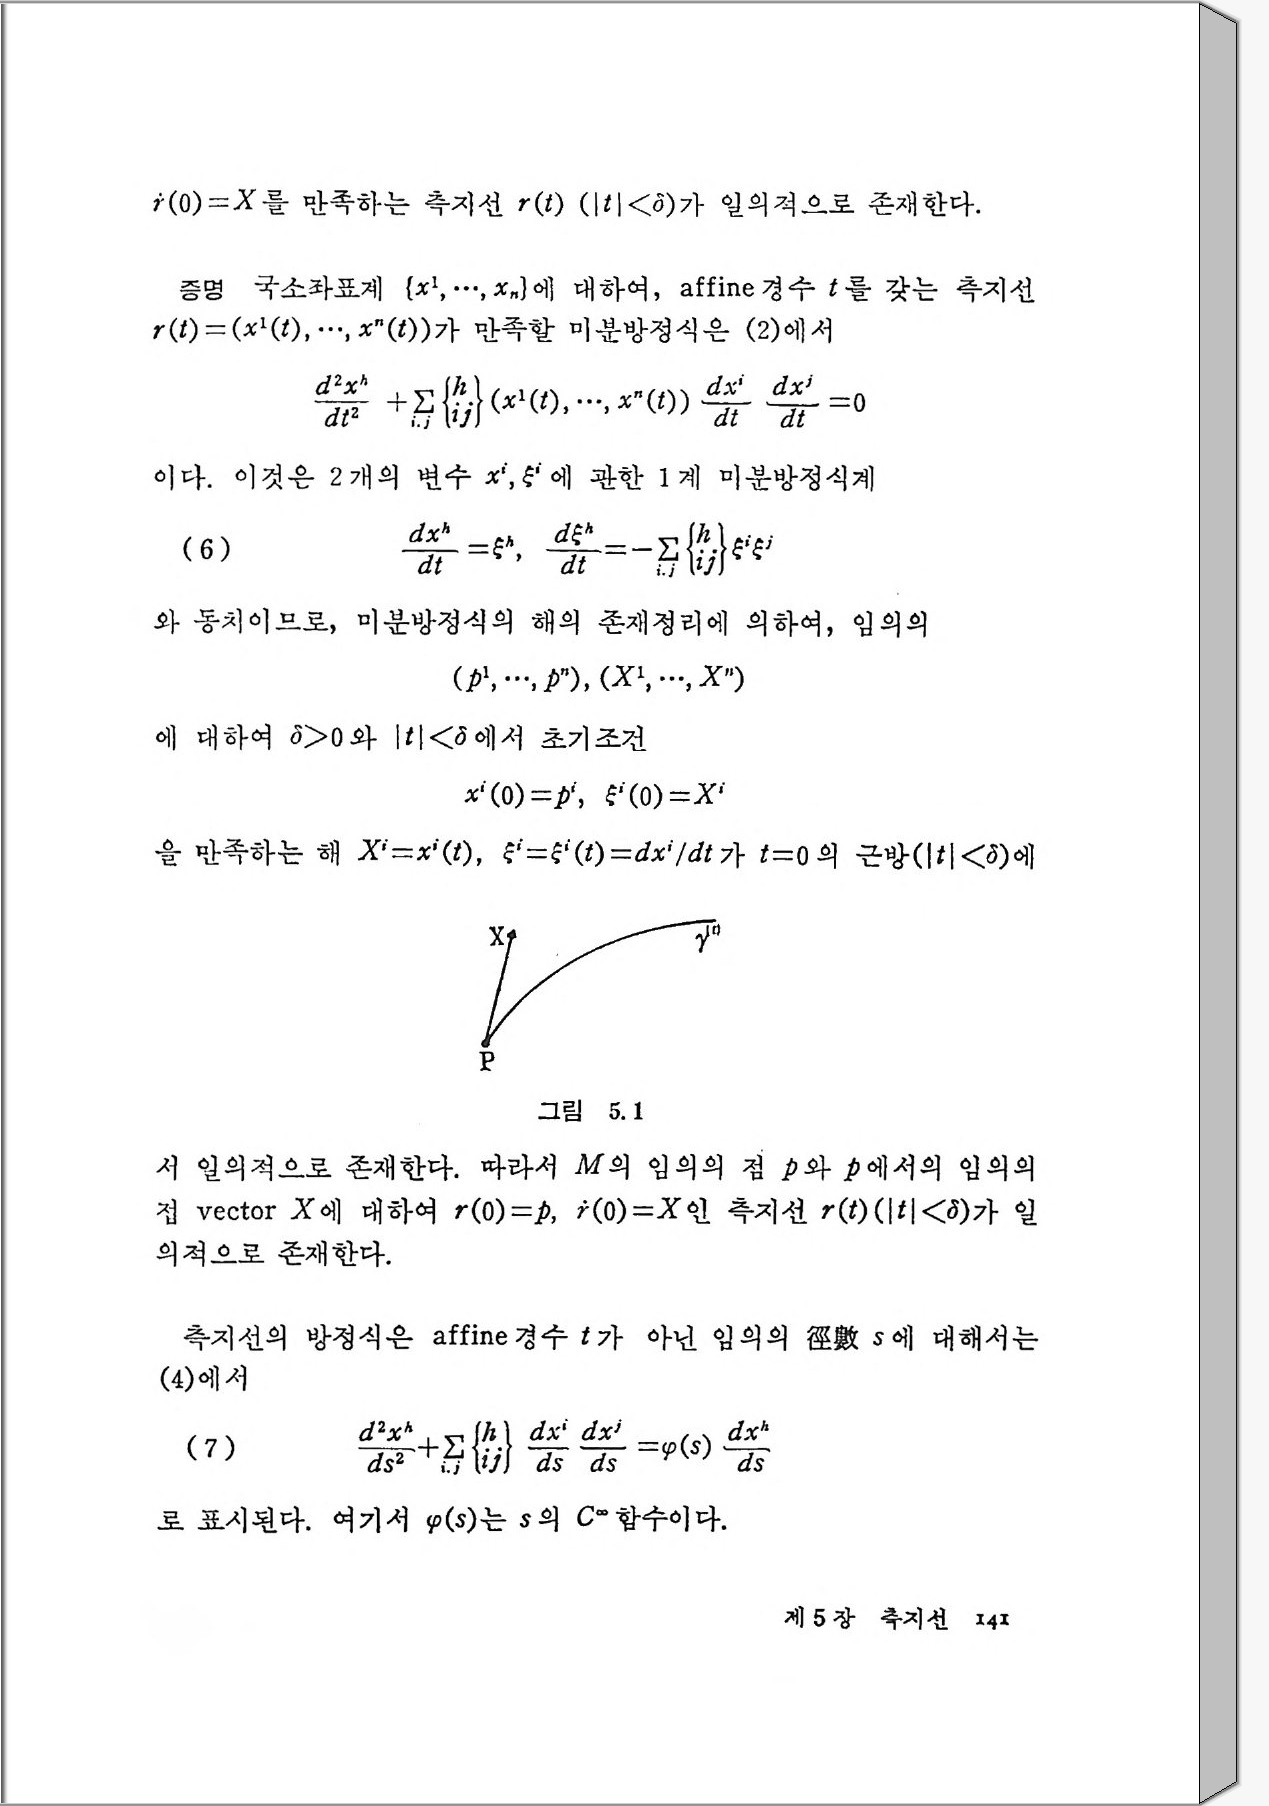 ṙ(0)=X를 만족하는 측지선 r(t) (|t|<δ)가 일의적으로 존재한다.
증명 국소좌표계 {x¹, ⋯, xₙ}에 대하여, affine 경수 t를 갖는 측지선
r(t)=(x¹(t), ⋯, xⁿ(t))가 만족할 미분방정식은 (2)에서
d²xʰ/dt² + Σ_{i,j} {h ij} (x¹(t), ⋯, xⁿ(t)) dxⁱ/dt dxʲ/dt =0
이다. 이것은 2개의 변수 xⁱ, ξⁱ에 관한 1계 미분방정식계
(6) dxʰ/dt =ξʰ, dξʰ/dt = −Σ_{i,j} {h ij} ξⁱξʲ
와 동치이므로, 미분방정식의 해의 존재정리에 의하여, 임의의
(p¹, ⋯, pⁿ), (X¹, ⋯, Xⁿ)
에 대하여 δ>0와 |t|<δ에서 초기조건
xⁱ(0)=pⁱ, ξⁱ(0)=Xⁱ
을 만족하는 해 Xⁱ=xⁱ(t), ξⁱ=ξⁱ(t)=dxⁱ/dt가 t=0의 근방(|t|<δ)에
X
γ(t)
P
그림 5.1
서 일의적으로 존재한다. 따라서 M의 임의의 점 p와 p에서의 임의의
접 vector X에 대하여 r(0)=p, ṙ(0)=X인 측지선 r(t)(|t|<δ)가 일
의적으로 존재한다.
측지선의 방정식은 affine 경수 t가 아닌 임의의 徑數 s에 대해서는
(4)에서
(7) d²xʰ/ds² + Σ_{i,j} {h ij} dxⁱ/ds dxʲ/ds =φ(s) dxʰ/ds
로 표시된다. 여기서 φ(s)는 s의 C∞ 함수이다.
제 5 장 측지선 141